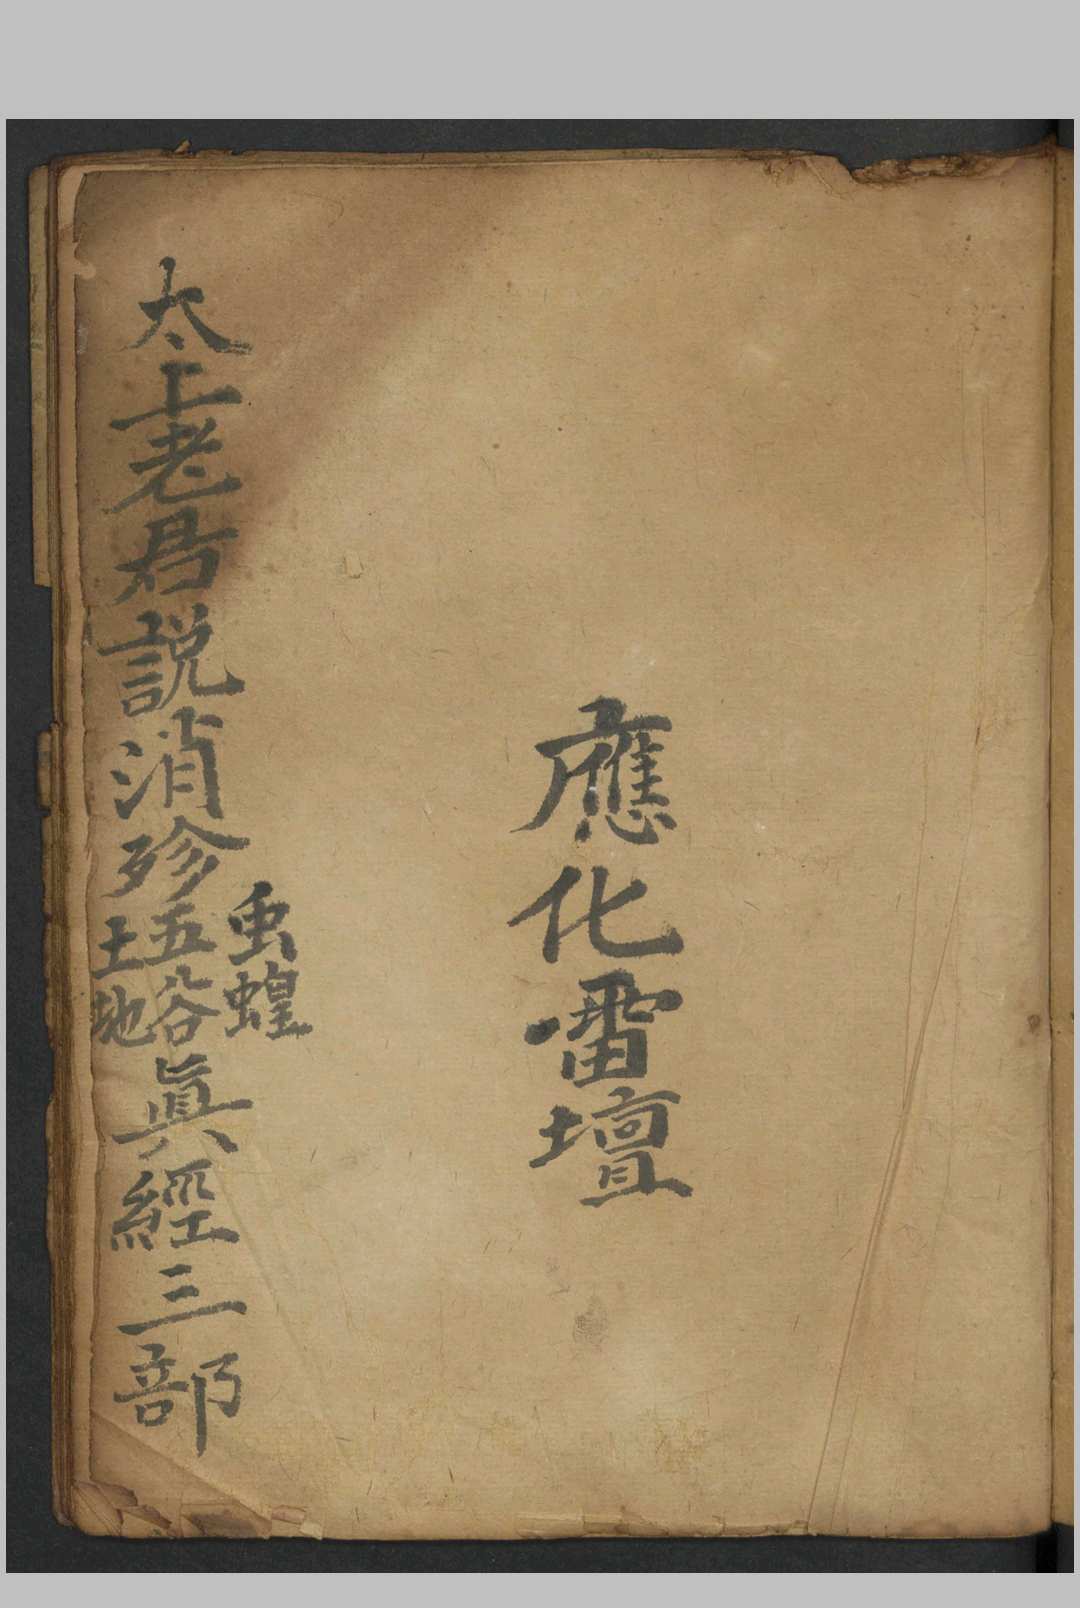 應化雷壇
太上老君説消殄虫蝗五谷土地眞經三部